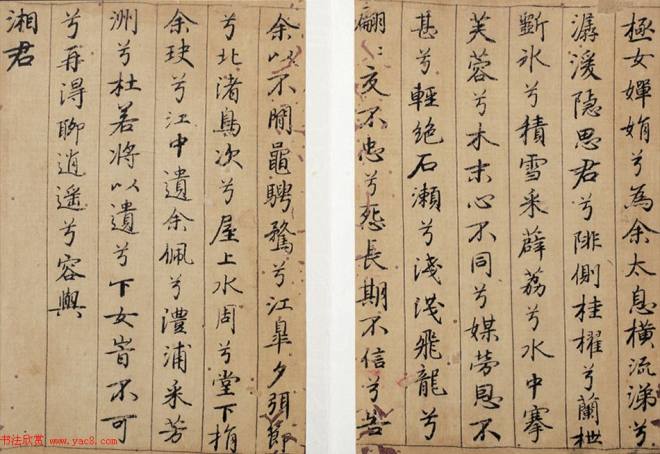 極女嬋娟兮為余太息橫流涕兮
潺湲隐思君兮陫側桂櫂兮蘭枻
斲氷兮積雪采薜荔兮水中搴
芙蓉兮木末心不同兮媒勞恩不
甚兮輕絶石瀨兮淺淺飛龍兮
翩〻交不忠兮怨長期不信兮告
余以不閒鼂騁騖兮江臯夕弭節
兮北渚鳥次兮屋上水周兮堂下捐
余玦兮江中遺余佩兮澧浦采芳
洲兮杜若將以遺兮下女旹不可
兮再得聊逍遥兮容與
湘君
书法欣赏
www.yac8.com